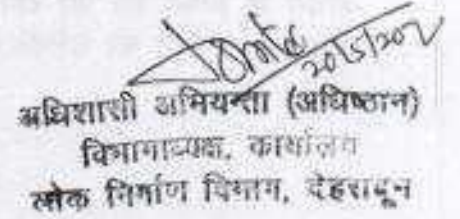 20/5/202
अधिशासी अभियन्ता (अधिष्ठान)
विभागाध्यक्ष, कार्यालय
लोक निर्माण विभाग, देहरादून